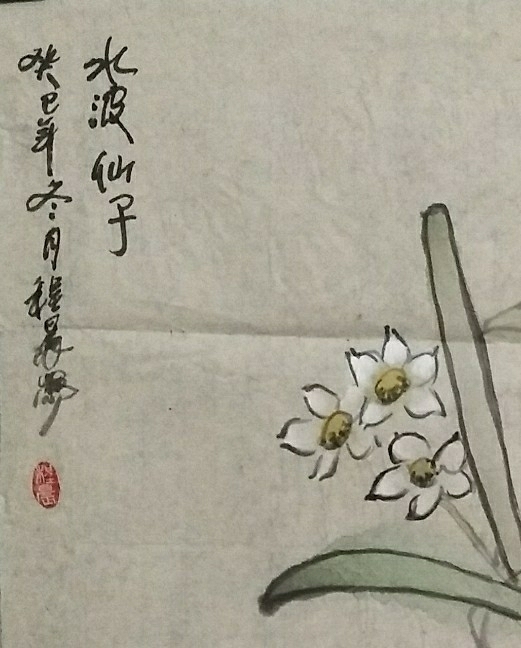 水波仙子
癸巳年冬月程晨